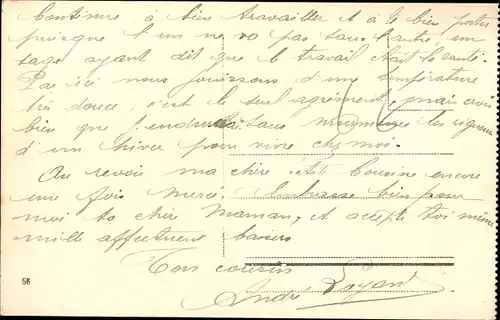 Continue à bien travailler et à te bien porter
puisque l'un ne va pas sans l'autre, un
sage ayant dit que le travail était la santé.
Par ici nous jouissons d'une température
très douce, c'est le seul agrément, mais crois
bien que j'endurerais sans murmurer les rigueurs
d'un hiver pour vivre chez moi.
Au revoir ma chère petite Cousine encore
une fois merci. Embrasse bien pour
moi ta chère Maman, et accepte toi même
mille affectueux baisers
Ton cousin
André
56